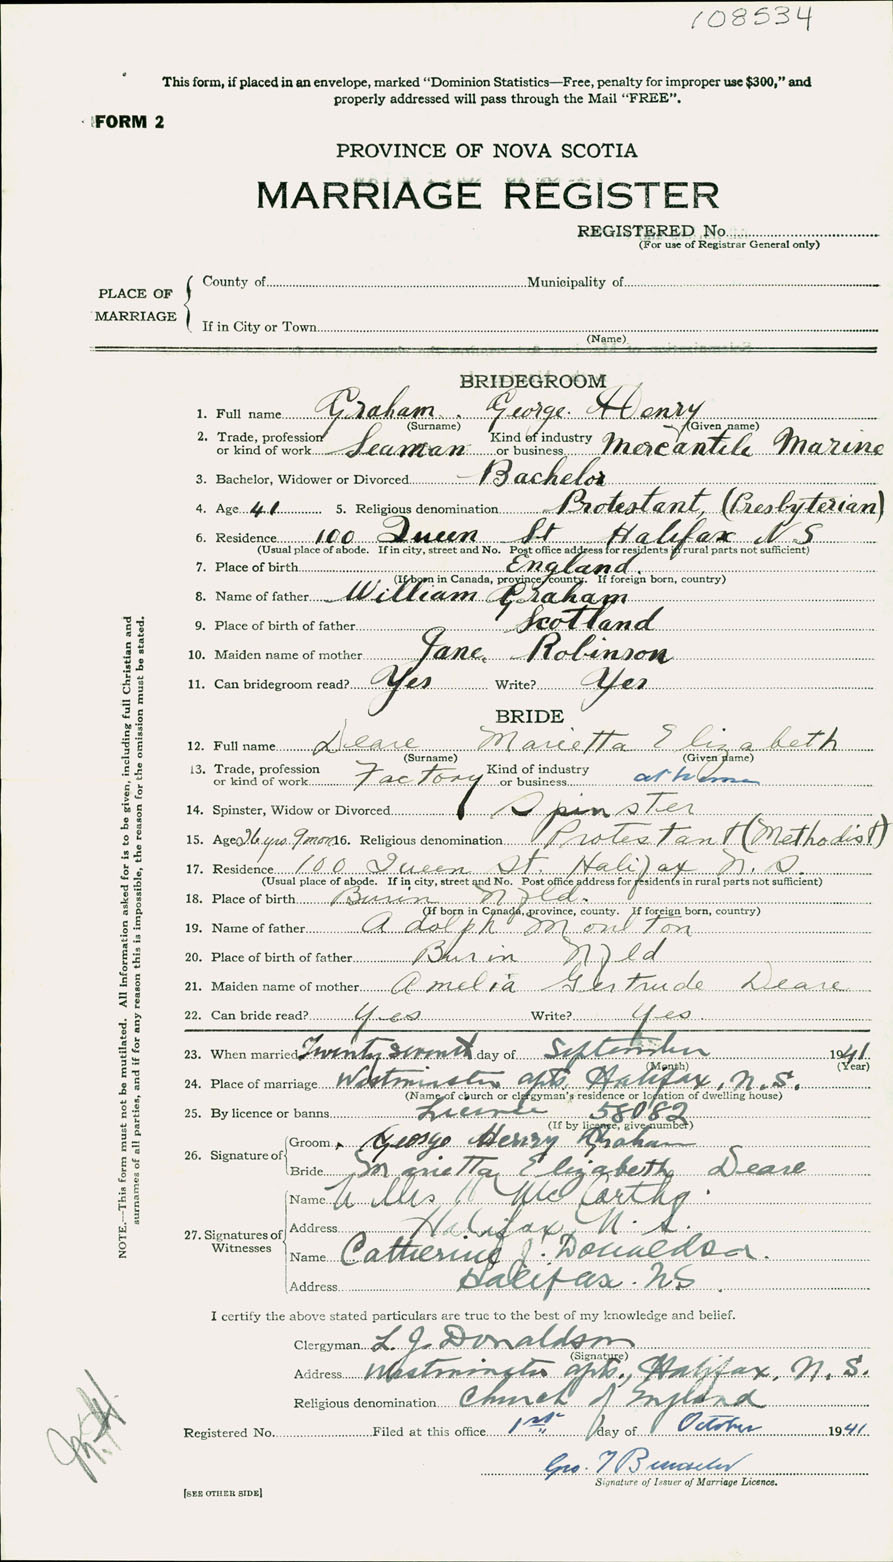 108534
This form, if placed in an envelope, marked “Dominion Statistics—Free, penalty for improper use $300,” and
properly addressed will pass through the Mail “FREE”.
FORM 2
PROVINCE OF NOVA SCOTIA
MARRIAGE REGISTER
REGISTERED No.
(For use of Registrar General only)
PLACE OF MARRIAGE
County of Municipality of
If in City or Town
(Name)
BRIDEGROOM
1. Full name Graham George Henry
(Surname) (Given name)
2. Trade, profession or kind of work Seaman Kind of industry or business Mercantile Marine
3. Bachelor, Widower or Divorced Bachelor
4. Age 41 5. Religious denomination Protestant, (Presbyterian)
6. Residence 100 Queen St Halifax N S
(Usual place of abode. If in city, street and No. Post office address for residents in rural parts not sufficient)
7. Place of birth England.
(If born in Canada, province, county. If foreign born, country)
8. Name of father William Graham
9. Place of birth of father Scotland
10. Maiden name of mother Jane Robinson
11. Can bridegroom read? Yes Write? Yes
BRIDE
12. Full name Deare Marietta Elizabeth
(Surname) (Given name)
13. Trade, profession or kind of work Factory Kind of industry or business at home
14. Spinster, Widow or Divorced Spinster
15. Age 26 yrs 9 mon 16. Religious denomination Protestant (Methodist)
17. Residence 100 Queen St. Halifax N.S.
(Usual place of abode. If in city, street and No. Post office address for residents in rural parts not sufficient)
18. Place of birth Burin Nfld.
(If born in Canada, province, county. If foreign born, country)
19. Name of father Adolph Moulton
20. Place of birth of father Burin Nfld
21. Maiden name of mother Amelia Gertrude Deare
22. Can bride read? Yes Write? Yes.
23. When married Twenty seventh day of September 1941
(Month) (Year)
24. Place of marriage Westminster apts. Halifax, N.S.
(Name of church or clergyman's residence or location of dwelling house)
25. By licence or banns License 58082
(If by license, give number)
26. Signature of Groom George Henry Graham
Bride Marietta Elizabeth Deare
27. Signatures of Witnesses
Name McCarthy.
Address Halifax N. S.
Name Catherine J. Donaldson.
Address Halifax. NS
I certify the above stated particulars are true to the best of my knowledge and belief.
Clergyman L. J. Donaldson
(Signature)
Address Westminster apts., Halifax, N. S.
Religious denomination Church of England
Registered No. Filed at this office 1st day of October 1941
Geo. T
Signature of Issuer of Marriage Licence.
[SEE OTHER SIDE]
NOTE.—This form must not be mutilated. All information asked for is to be given, including full Christian and
surnames of all parties, and if for any reason this is impossible, the reason for the omission must be stated.